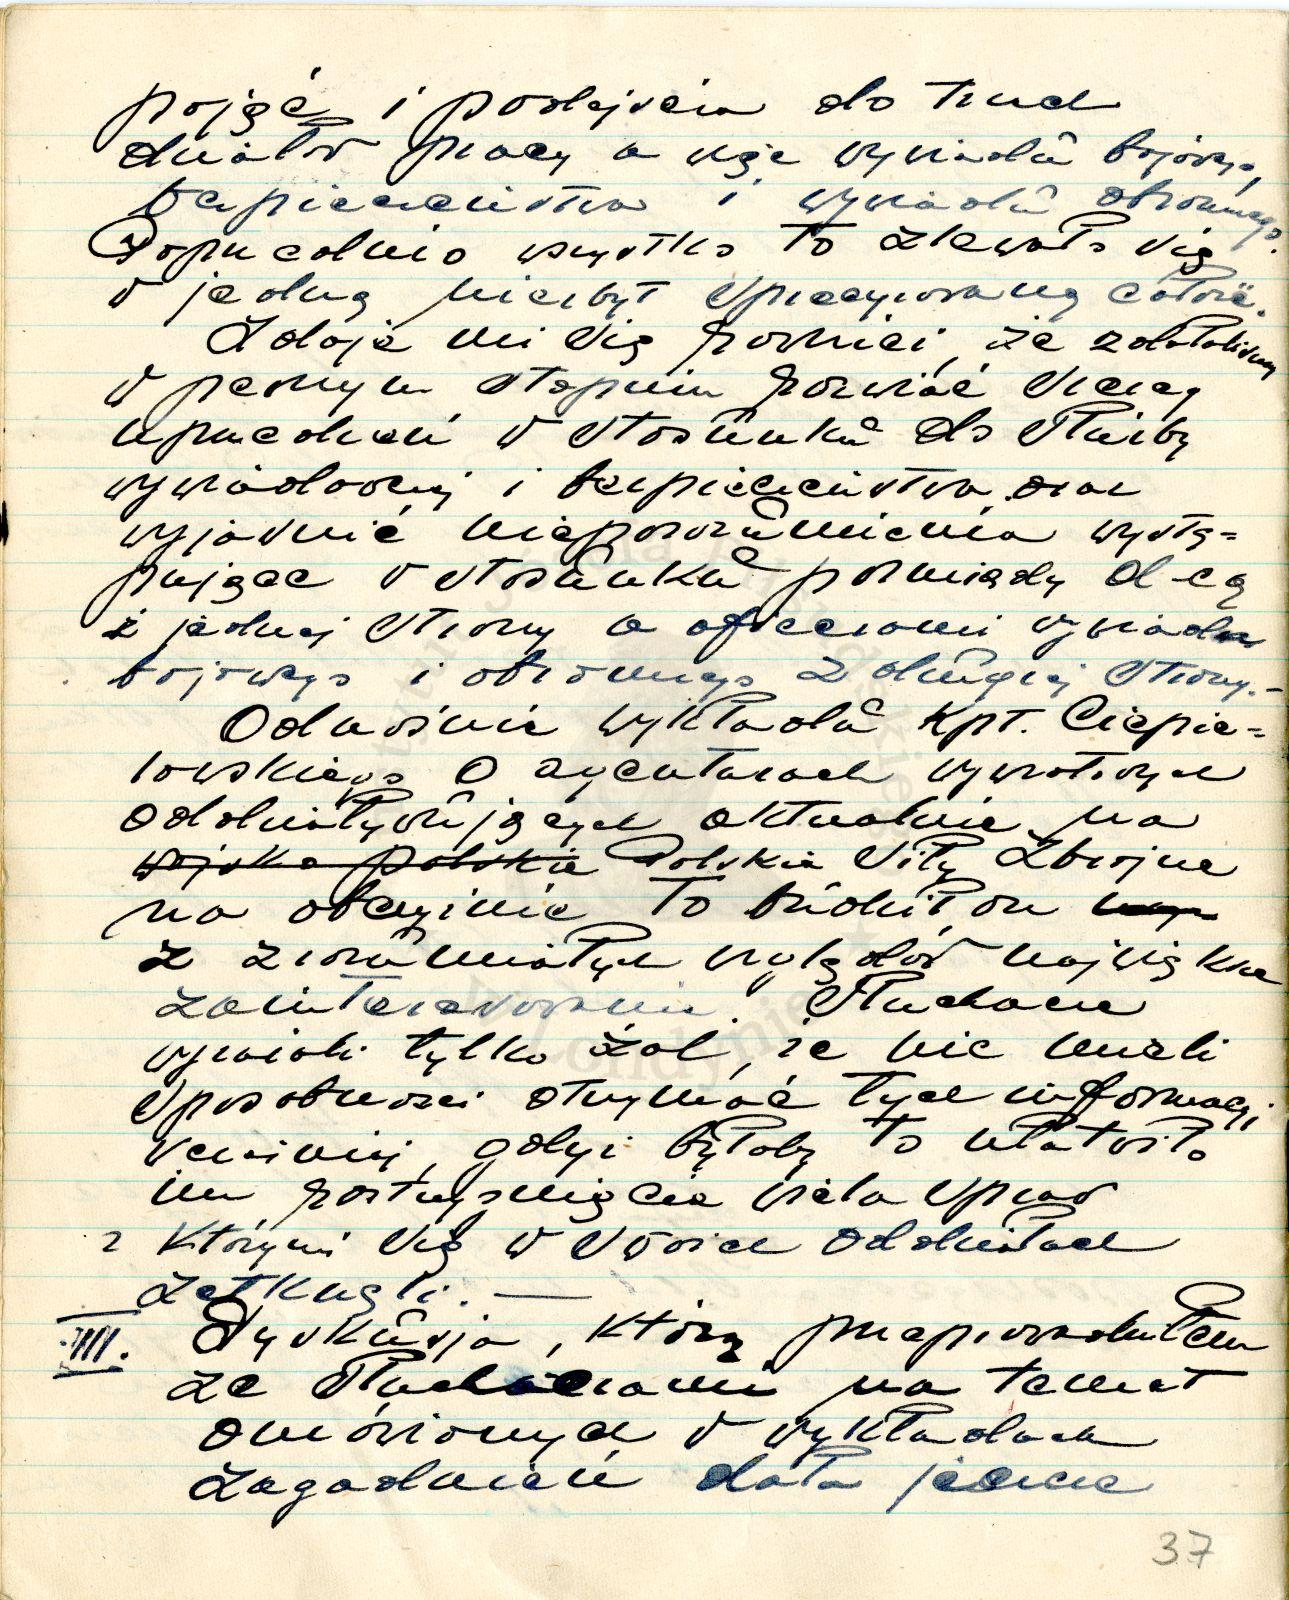 pojęć i podejścia do trzech
działów pracy a więc wywiadu bojowego,
bezpieczeństwa i wywiadu obronnego.
Poprzednio wszystko to zlewało się
w jedną niezbyt sprecyzowaną całość.
Zdaje mi się również, że zdołaliśmy
w pewnym stopniu rozwiać szereg
uprzedzeń w stosunku do służby
wywiadowczej i bezpieczeństwa oraz
wyjaśnić nieporozumienia wystę=
pujące w stosunku pomiędzy d-cą
z jednej strony a oficerami wywiadu
bojowego i obronnego z drugiej strony.-
Odnośnie wykładu kpt. Ciepie=
lowskiego o agenturach wywrotowych
oddziaływujących aktualnie na
wojsko polskie Polskie Siły Zbrojne
na obczyźnie to budził on
z zrozumiałych względów największe
zainteresowanie. Słuchacze
wyrażali tylko żal, że nie mieli
sposobności otrzymać tych informacji
wcześniej, gdyż byłoby to ułatwiło
im rozstrzygnięcie wielu spraw
z którymi się w swoich oddziałach
zetknęli. —
VIII. Dyskusja, którą przeprowadziłem
ze słuchaczami na temat
omówionych w wykładach
zagadnień dała jeszcze
37